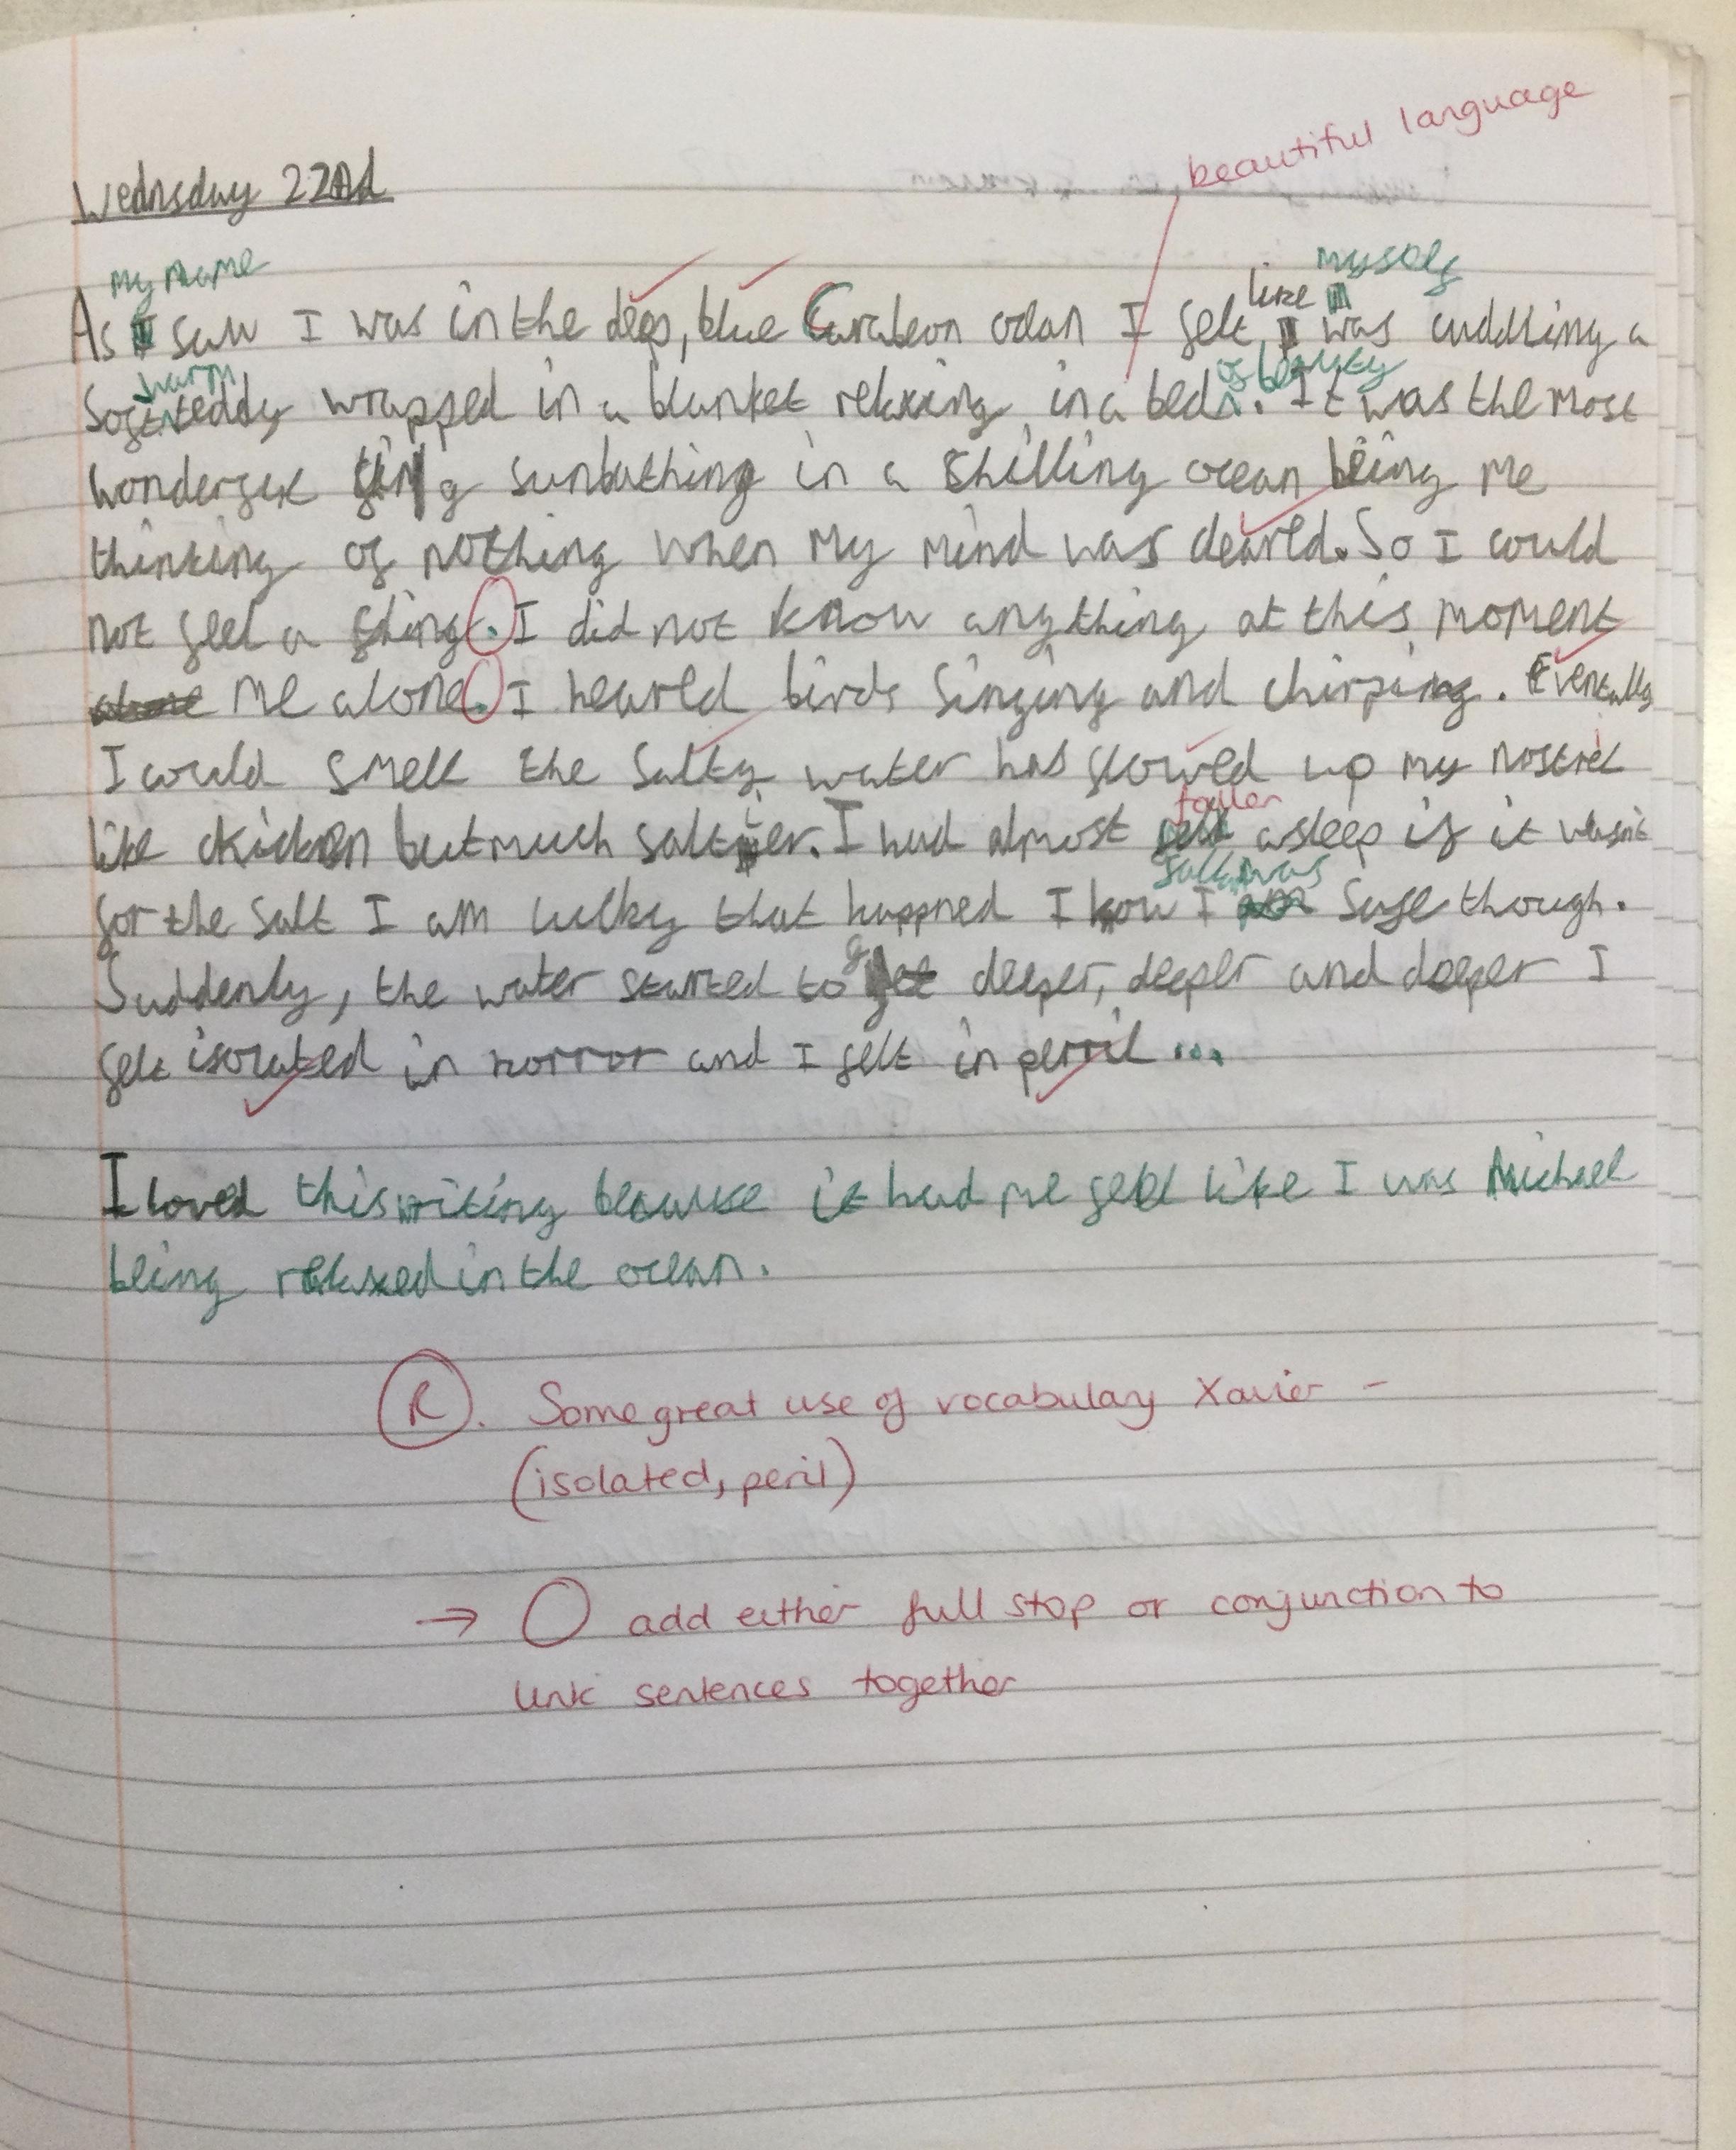 beautiful language
Wednsday 22nd
my name
myself
like
As I saw I was in the deep, blue Carabeon ocean I felt I was cuddling a
warm
of beauty
soft teddy wrapped in a blanket relaxing in a bed. It was the most
wonderful sunbathing in a shilling ocean being me
thinking of nothing when my mind was cleared. So I could
not feel a thing. I did not know anything at this moment
alone me alone. I heared birds singing and chirping. Eventully
I could smell the salty water has flowed up my nostrel
fallen
like chicken but much saltier. I had almost asleep if it wasnt
fallen was
for the salt I am lucky that happned I know I am safe though.
Suddenly, the water started to get deeper, deeper and deeper I
felt isolated in horror and I felt in perril ...
I loved this writing because it had me feel like I was Michael
being relaxed in the ocean.
R. Some great use of vocabulary Xavier -
(isolated, peril)
→ O add either full stop or conjunction to
link sentences together